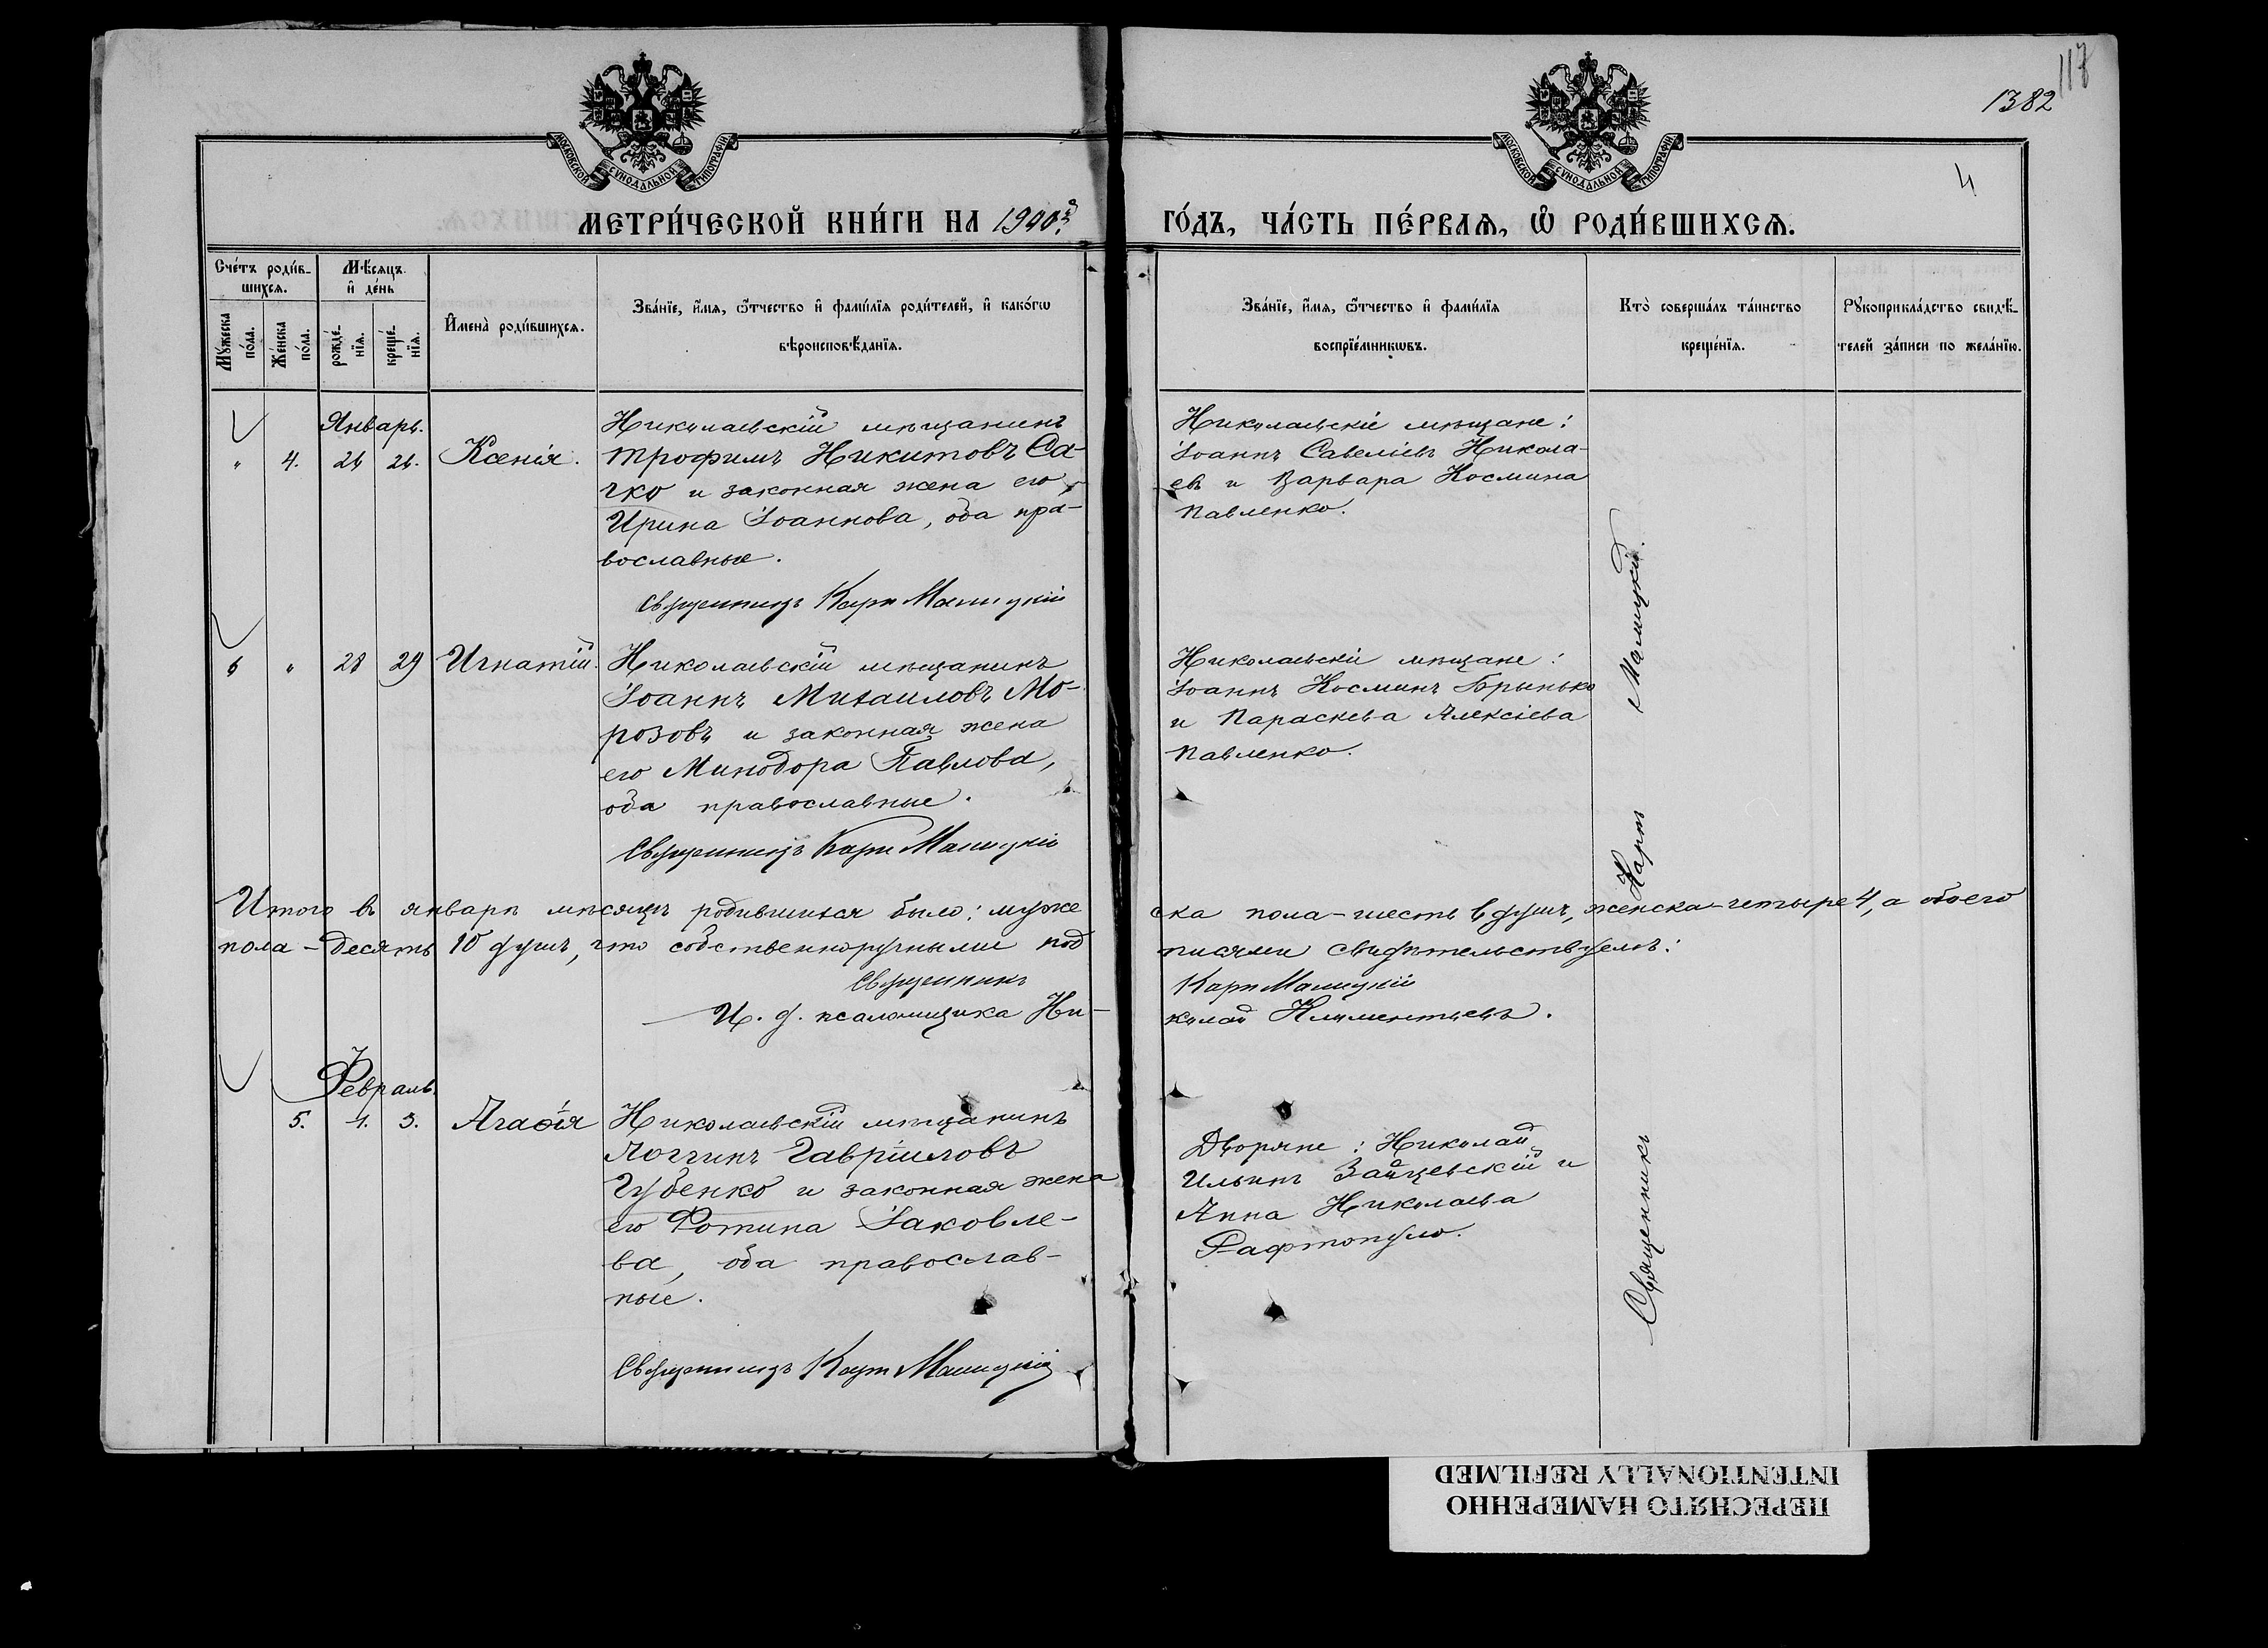 118
1382
4
МОСКОВСКОЙ СУНОДАЛЬНОЙ ТИПОГРАФІИ
МОСКОВСКОЙ СУНОДАЛЬНОЙ ТИПОГРАФІИ
МЕТРИ́ЧЕСКОЙ КНИ́ГИ НА
ГО́ДЪ, ЧА́СТЬ ПЕ́РВАѦ, Ѡ҆ РОДИ́ВШИХСѦ.
Сче́тъ роди́в-
шихсѧ.
Мѣ́сѧцъ
и҆ де́нь
Мꙋ́жеска по́ла.
Же́нска по́ла.
рожде́-
нїѧ.
креще́-
нїѧ.
И҆мена̀ роди́вшихсѧ.
Зва́нїе, и҆́мѧ, ѻ҆́тчество и҆ фами́лїѧ роди́телей, и҆ како́гѡ
вѣроисповѣ́данїѧ.
Зва́нїе, и҆́мѧ, ѻ҆́тчество и҆ фами́лїѧ
воспрїе́мникѡвъ.
Кто̀ соверша́лъ та́инство
креще́нїѧ.
Рꙋкоприкла́дство свидѣ́-
телей за́писи по жела́нїю.
Январь.
" 4. 24 24. Ксенія.
Николаевскій мѣщанинъ
Трофимъ Никитовъ Са-
чко и законная жена его
Ирина Іоаннова, оба пра-
вославные.
Священникъ Карпъ Малицкій
Николаевскіе мѣщане:
Іоаннъ Савеліевъ Никола-
евъ и Варвара Космина
Павленко.
6 " 28 29 Игнатій.
Николаевскій мѣщанинъ
Іоаннъ Михаиловъ Мо-
розовъ и законная жена
его Минодора Павлова,
оба православные.
Священникъ Карпъ Малицкій
Николаевскіе мѣщане:
Іоаннъ Косминъ Брынько
и Параскева Алексіева
Павленко.
Итого въ январѣ мѣсяцѣ родившихся было: муже ска пола - шесть 6 душъ, женска - четыре 4, а обоего
пола - десять 10 душъ, что собственноручными под писями свидѣтельствуемъ:
Священникъ Карпъ Малицкій
И. д. псаломщика Ни- колай Климентьевъ.
Февраль.
5. 1. 3. Агаѳія
Николаевскій мѣщанинъ
Логгинъ Гавріиловъ
Губенко и законная жена
его Фотина Іаковле-
ва, оба православ-
ные.
Священникъ Карпъ Малицкій
Дворяне: Николай
Ильинъ Зайцевскій и
Анна Николаева
Рафтопуло.
Священникъ Карпъ Малицкій.
ПЕРЕСНЯТО НАМЕРЕННО
INTENTIONALLY REFILMED